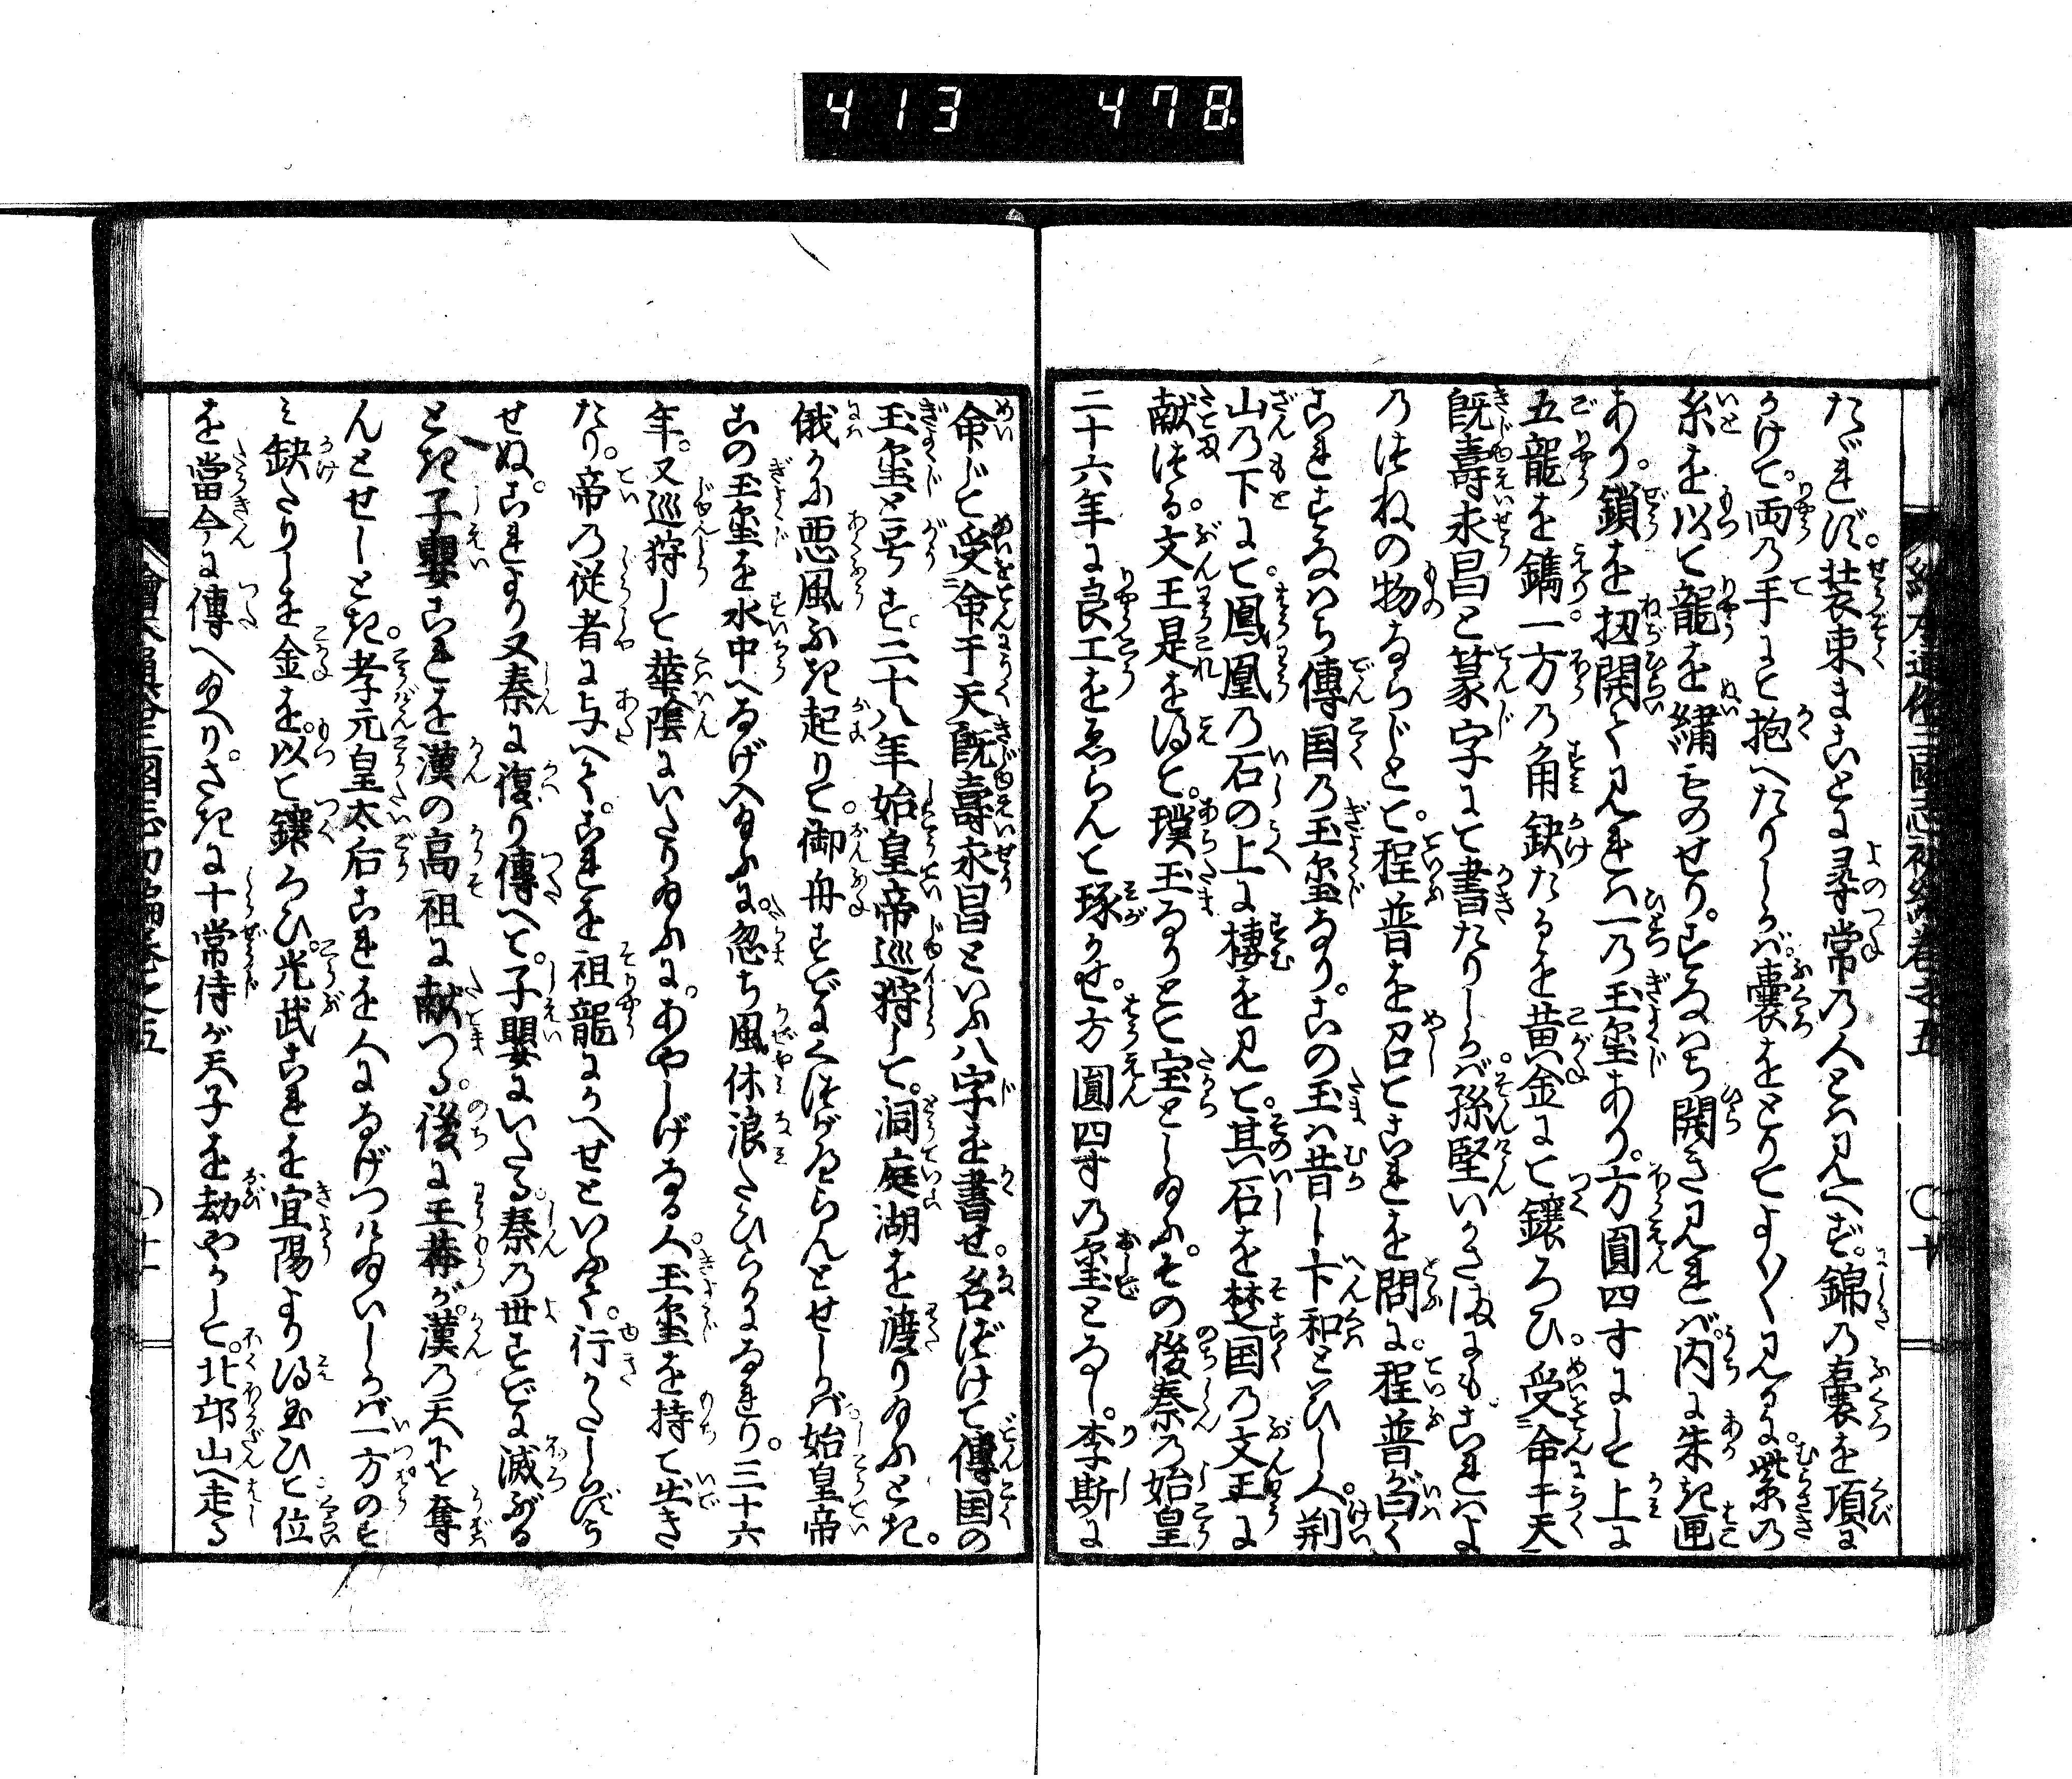 413 478
繪本通俗三國志初編卷之五 〇十
たゞれず。装束まことに尋常の人とは見へず。錦の嚢を項に
かけて。両の手にて抱へたりしかば。嚢をとりてよく〳〵見るに。紫の
糸を以て龍を繍ものせり。すなはち開き見れば。内に朱き匣
あり。鎖を扭開て見れは一の玉璽あり。方圓四寸にして上に
五龍を鐫。一方の角缺たるを黄金にて鑲ろひ。受命于天
既壽永昌と篆字にて書たりしかば。孫堅いかさまにもこれはよ
のつねの物ならじとて。程普を召てこれを問に。程普が曰く
これすなはち傳国の玉璽なり。この玉は昔し卞和といひし人。荊
山の下にて。鳳凰の石の上に棲を見て。其石を楚国の文王に
献ず。文王是を得て。璞玉なりとて宝としゐふ。その後秦の始皇
二十六年に良工をゑらんで琢かせ。方圓四寸の璽となし。李斯に
命じて受命于天既壽永昌といふ八字を書せ。名づけて傳国の
玉璽と号す。二十八年始皇帝巡狩して。洞庭湖を渡りゐふとき。
俄かに悪風ふき起りて。御舟すでにくつがへらんとせしかば。始皇帝
この玉璽を水中へなげ入ゐふに。忽ち風休浪たひらかになれり。三十六
年。又巡狩して華陰にいたりゐふに。あやしげなる人。玉璽を持て出き
たり。帝の従者に与へて。これを祖龍にかへせといふて。行かたしらずう
せぬ。これより又秦に復り傳へて。子嬰にいたる。秦の世すでに滅ぶる
とき子嬰これを漢の高祖に献つる。後に王莽が。漢の天下を奪
んとせしとき。孝元皇太后これを人になげつけゐいしかば一方のすみ
缺たりしを金を。以て鑲ろひ。光武これを宜陽より得玉ひて位
を當今に傳へゐへり。さきに十常侍が天子を劫やかして。北邙山へ走る